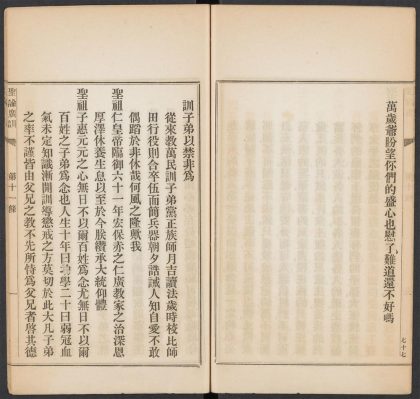 萬歲爺盼望你們的盛心也慰了、難道還不好嗎
七十七
訓子弟以禁非爲
從來教萬民訓子弟黨正族師月吉讀法歲時校比師
田行役則合卒伍而簡兵器朝夕誥誡人知自愛不敢
偶蹈於非休哉何風之隆歟我
聖祖仁皇帝臨御六十一年宏保赤之仁廣教家之治深恩
厚澤休養生息以至於今朕纘承大統仰體
聖祖子惠元元之心無日不以爾百姓爲念尤無日不以爾
百姓之子弟爲念也人生十年曰幼學二十曰弱冠血
氣未定知識漸開訓導懲戒之方莫切於此大凡子弟
之率不謹皆由父兄之教不先所恃爲父兄者啓其德
聖諭廣訓
第十一條